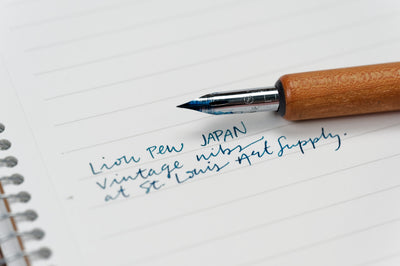 Lion Pen JAPAN
Vintage nibs
at St Louis Art Supply.